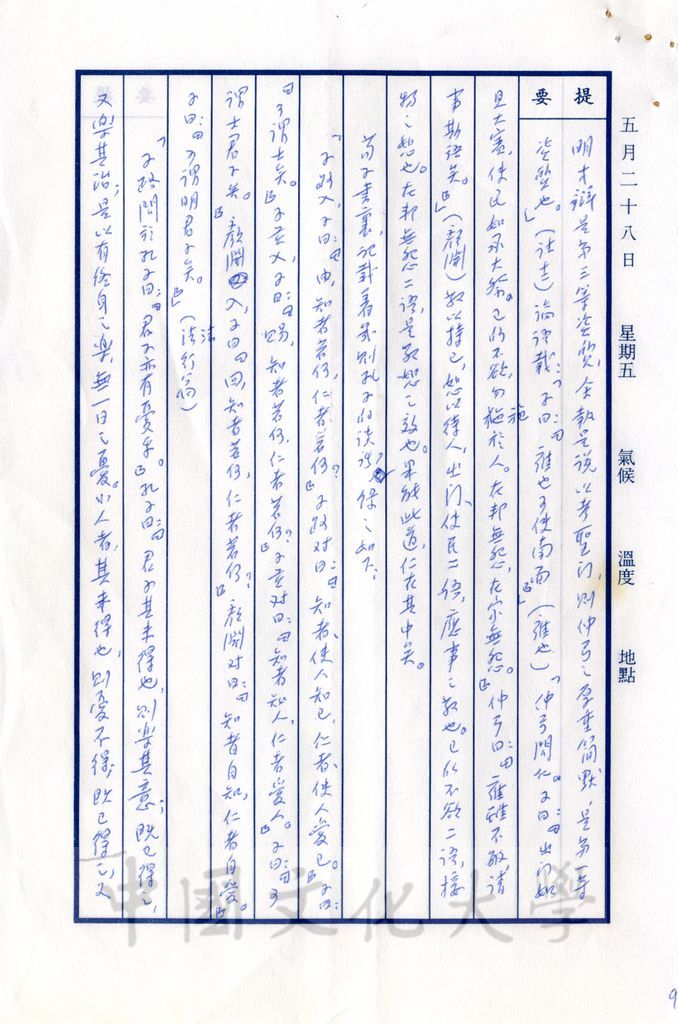 五月二十八日 星期五 氣候 溫度 地點
提要
明才辯是第三等資質,全報是說以考聖門,則仲弓之厚重簡默,是第一等
資質也。」(法言)論語載:「子曰:『雍也可使南面』(雍也)「仲弓問仁。子曰:『出門如
見大賓,使民如承大祭。己所不欲,勿施於人。在邦無怨,在家無怨。』仲弓曰:『雍雖不敏,請
事斯語矣。』」(顏淵)敬以持己,恕以待人,出門、使民二語,應事之敬也。己所不欲二語,接
物之恕也。在邦無怨二語,是敬恕之效也。果能此道,仁在其中矣。
荀子書裏,記載著幾則孔子的談話,錄之如下:
「子路入,子曰:『由,知者若何,仁者若何?』子路对曰:『知者使人知己,仁者使人愛己。』子曰:
『可謂士矣。』子貢入,子曰:『賜,知者若何,仁者若何?』子貢对曰:『知者知人,仁者愛人。』子曰:『可
謂士君子矣。』顏淵入,子曰:『回,知者若何,仁者若何?』顏淵对曰:『知者自知,仁者自愛。』
子曰:『可謂明君子矣。』」(法行篇)
「子路問於孔子曰:『君子亦有憂乎。』孔子曰:『君子其未得也,則樂其意;既已得之,
又樂其治;是以有終身之樂,無一日之憂。小人者,其未得也,則憂不得;既已得之,又
中國文化大學
9